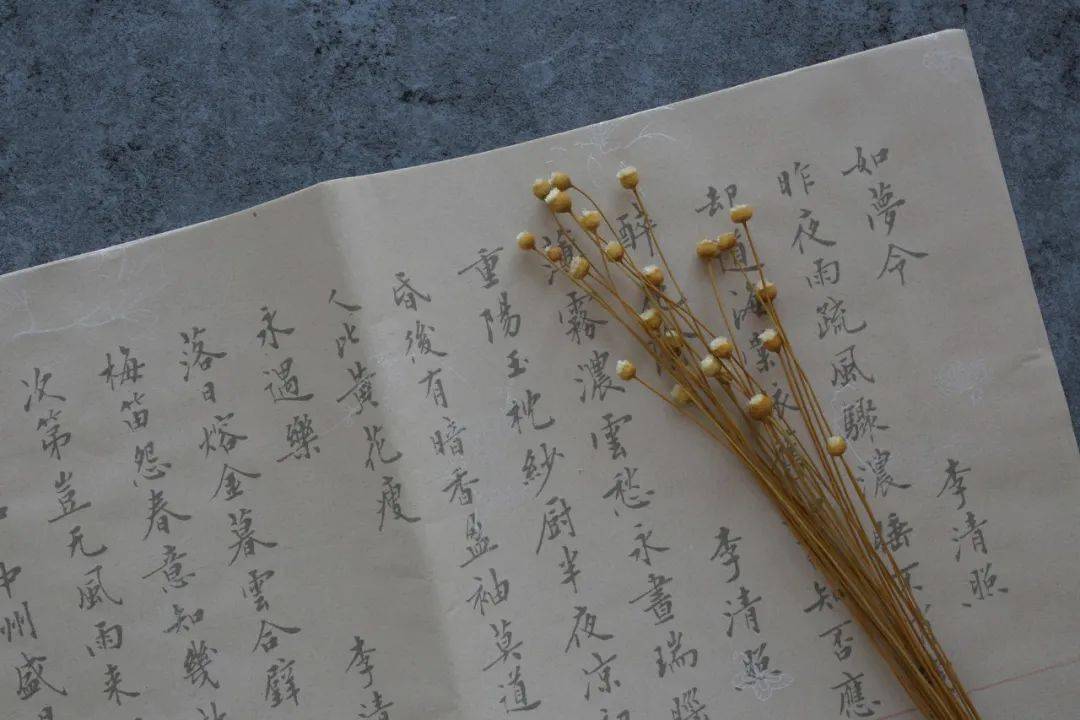 如夢令 李清照
昨夜雨疏風驟濃睡不
却道海棠依舊知否應
醉 李清照
薄霧濃雲愁永晝瑞腦
重陽玉枕紗厨半夜凉初
昏後有暗香盈袖莫道
人比黃花瘦
永遇樂 李清
落日熔金暮雲合璧
梅笛怨春意知幾
次第豈无風雨来
中州盛